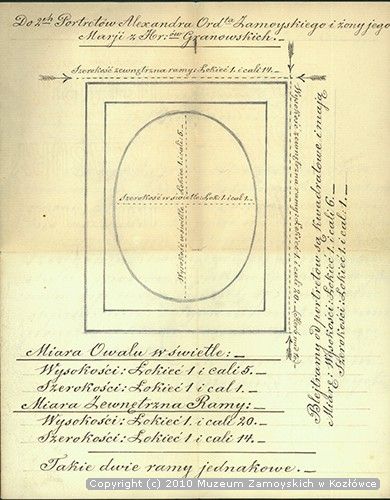 Do 2ch Portretów Alexandra Ordta Zamoyskiego i żony jego
Marji z Hr: ów Granowskich. _
Szerokość zewnętrzna ramy: Łokieć 1. i cali 14. _
Wysokość zewnętrzna ramy: Łokieć 1 i cali 20. _
Wysokość w świetle: Łokieć 1. i cali 5. _
Szerokość w świetle: Łok: 1. i cal 1. _
Blejtramy od portretów są kwadratowe i mają
Miarę: Wysokości: Łokieć 1. i cali 6. _
Szerokości: Łokieć 1. i cal. 1. _
Miara Owalu w świetle: _
Wysokości: Łokieć 1 i cali 5. _
Szerokości: Łokieć 1 i cal 1. _
Miara Zewnętrzna Ramy: _
Wysokości: Łokieć 1. i cali 20. _
Szerokości: Łokieć 1 i cali 14. _
Takie dwie ramy jednakowe. _
Copyright (c) 2010 Muzeum Zamoyskich w Kozłówce